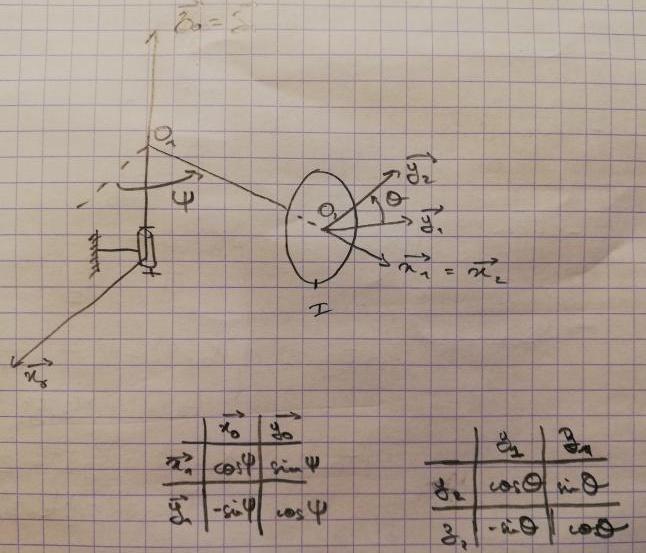 z₀ = z
O₁
ψ
y₂
θ
O₁ y₁
x₁ = x₂
I
x₀
x₀ y₀
x₁ cosψ sinψ
y₁ -sinψ cosψ
y₁ z₁
y₂ cosθ sinθ
z₂ -sinθ cosθ